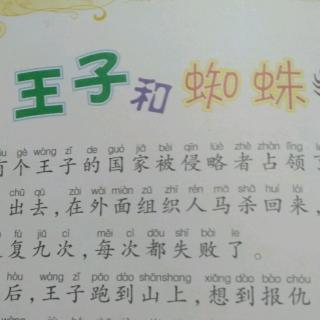 王子和蜘蛛
gè wáng zǐ de guó jiā bèi qīn lüè zhě zhàn lǐng
有个王子的国家被侵略者占领了
chū qù zài wài miàn zǔ zhī rén mǎ shā huí lái
出去，在外面组织人马杀回来，
fù jiǔ cì měi cì dōu shī bài le
复九次，每次都失败了。
hòu wáng zǐ pǎo dào shānshang xiǎng dào bào chóu
后，王子跑到山上，想到报仇